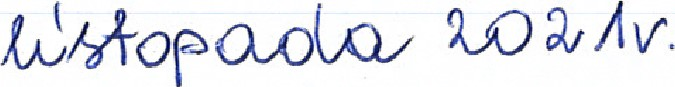 listopada 2021r.